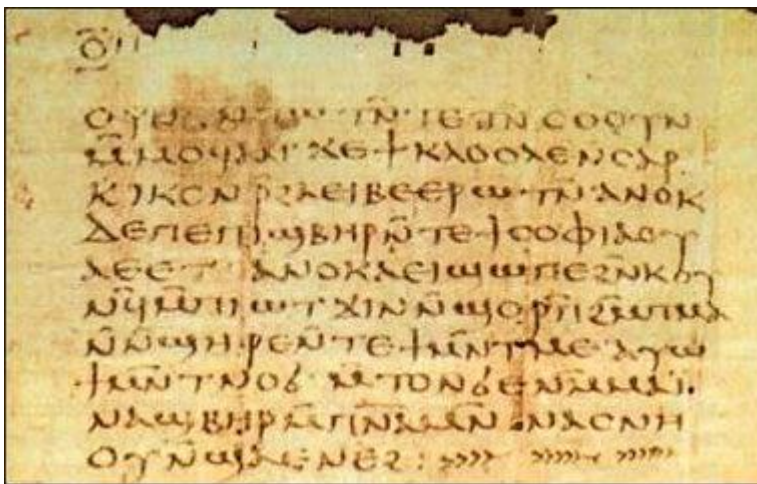 ⲟ̄
ⲧⲉⲧⲛ̄ⲥⲟⲟⲩⲛ
ⲙ̄ⲙⲟϥ ⲁⲛ ϫⲉ ϯⲕⲗⲟⲟⲗⲉ ⲛⲥⲁⲣ
ⲕⲓⲕⲟⲛ ⲣ̄ϩⲁⲉⲓⲃⲉ ⲉⲣⲱⲧⲛ̄ ⲁⲛⲟⲕ
ⲇⲉ ⲡⲉ ⲡⲓϣⲃⲏⲣ ⲛ̄ⲧⲉ ϯⲥⲟⲫⲓⲁ ⲟⲩ
ⲁⲉⲉⲧ ⲁⲛⲟⲕ ⲁⲉⲓϣⲱⲡⲉ ϩⲛ ⲕⲟⲩ
ⲛϥ̄ ⲙ̄ⲡⲓⲱⲧ ϫⲓⲛ ⲛ̄ϣⲟⲣⲡ̄ ϩⲙ̄ ⲡⲙⲁ
ⲛ̄ⲛ̄ϣⲏⲣⲉ ⲛ̄ⲧⲉ ϯⲙⲛ̄ⲧⲙⲉ ⲁⲩⲱ
ϯⲙⲛ̄ⲧⲛⲟϭ ⲙ̄ⲧⲟⲛ ϭⲉ ⲛⲙ̄ⲙⲁⲓ·
ⲛⲁϣⲃⲏⲣ ⲙ̄ⲡⲛ̄ⲁ̄ ⲙⲛ̄ ⲛⲁⲥⲛⲏ
ⲟⲩ ⲛ̄ϣⲁⲉⲛⲉϩ : ›››› ››››› ›››››